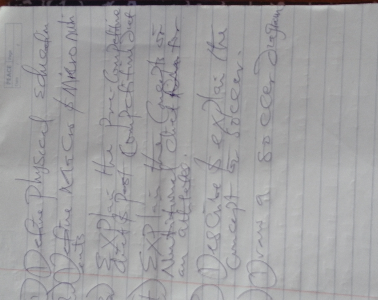 1) Define Physical Education
2) Define Macro & Micronutri
ents
3) Explain the Pre-Competition
diet & Post Competition diet
4) Explain the Concept of
Nutritional diet for
an athlete.
5) Describe & explain the
Concept of Soccer.
) Draw a Soccer diagram